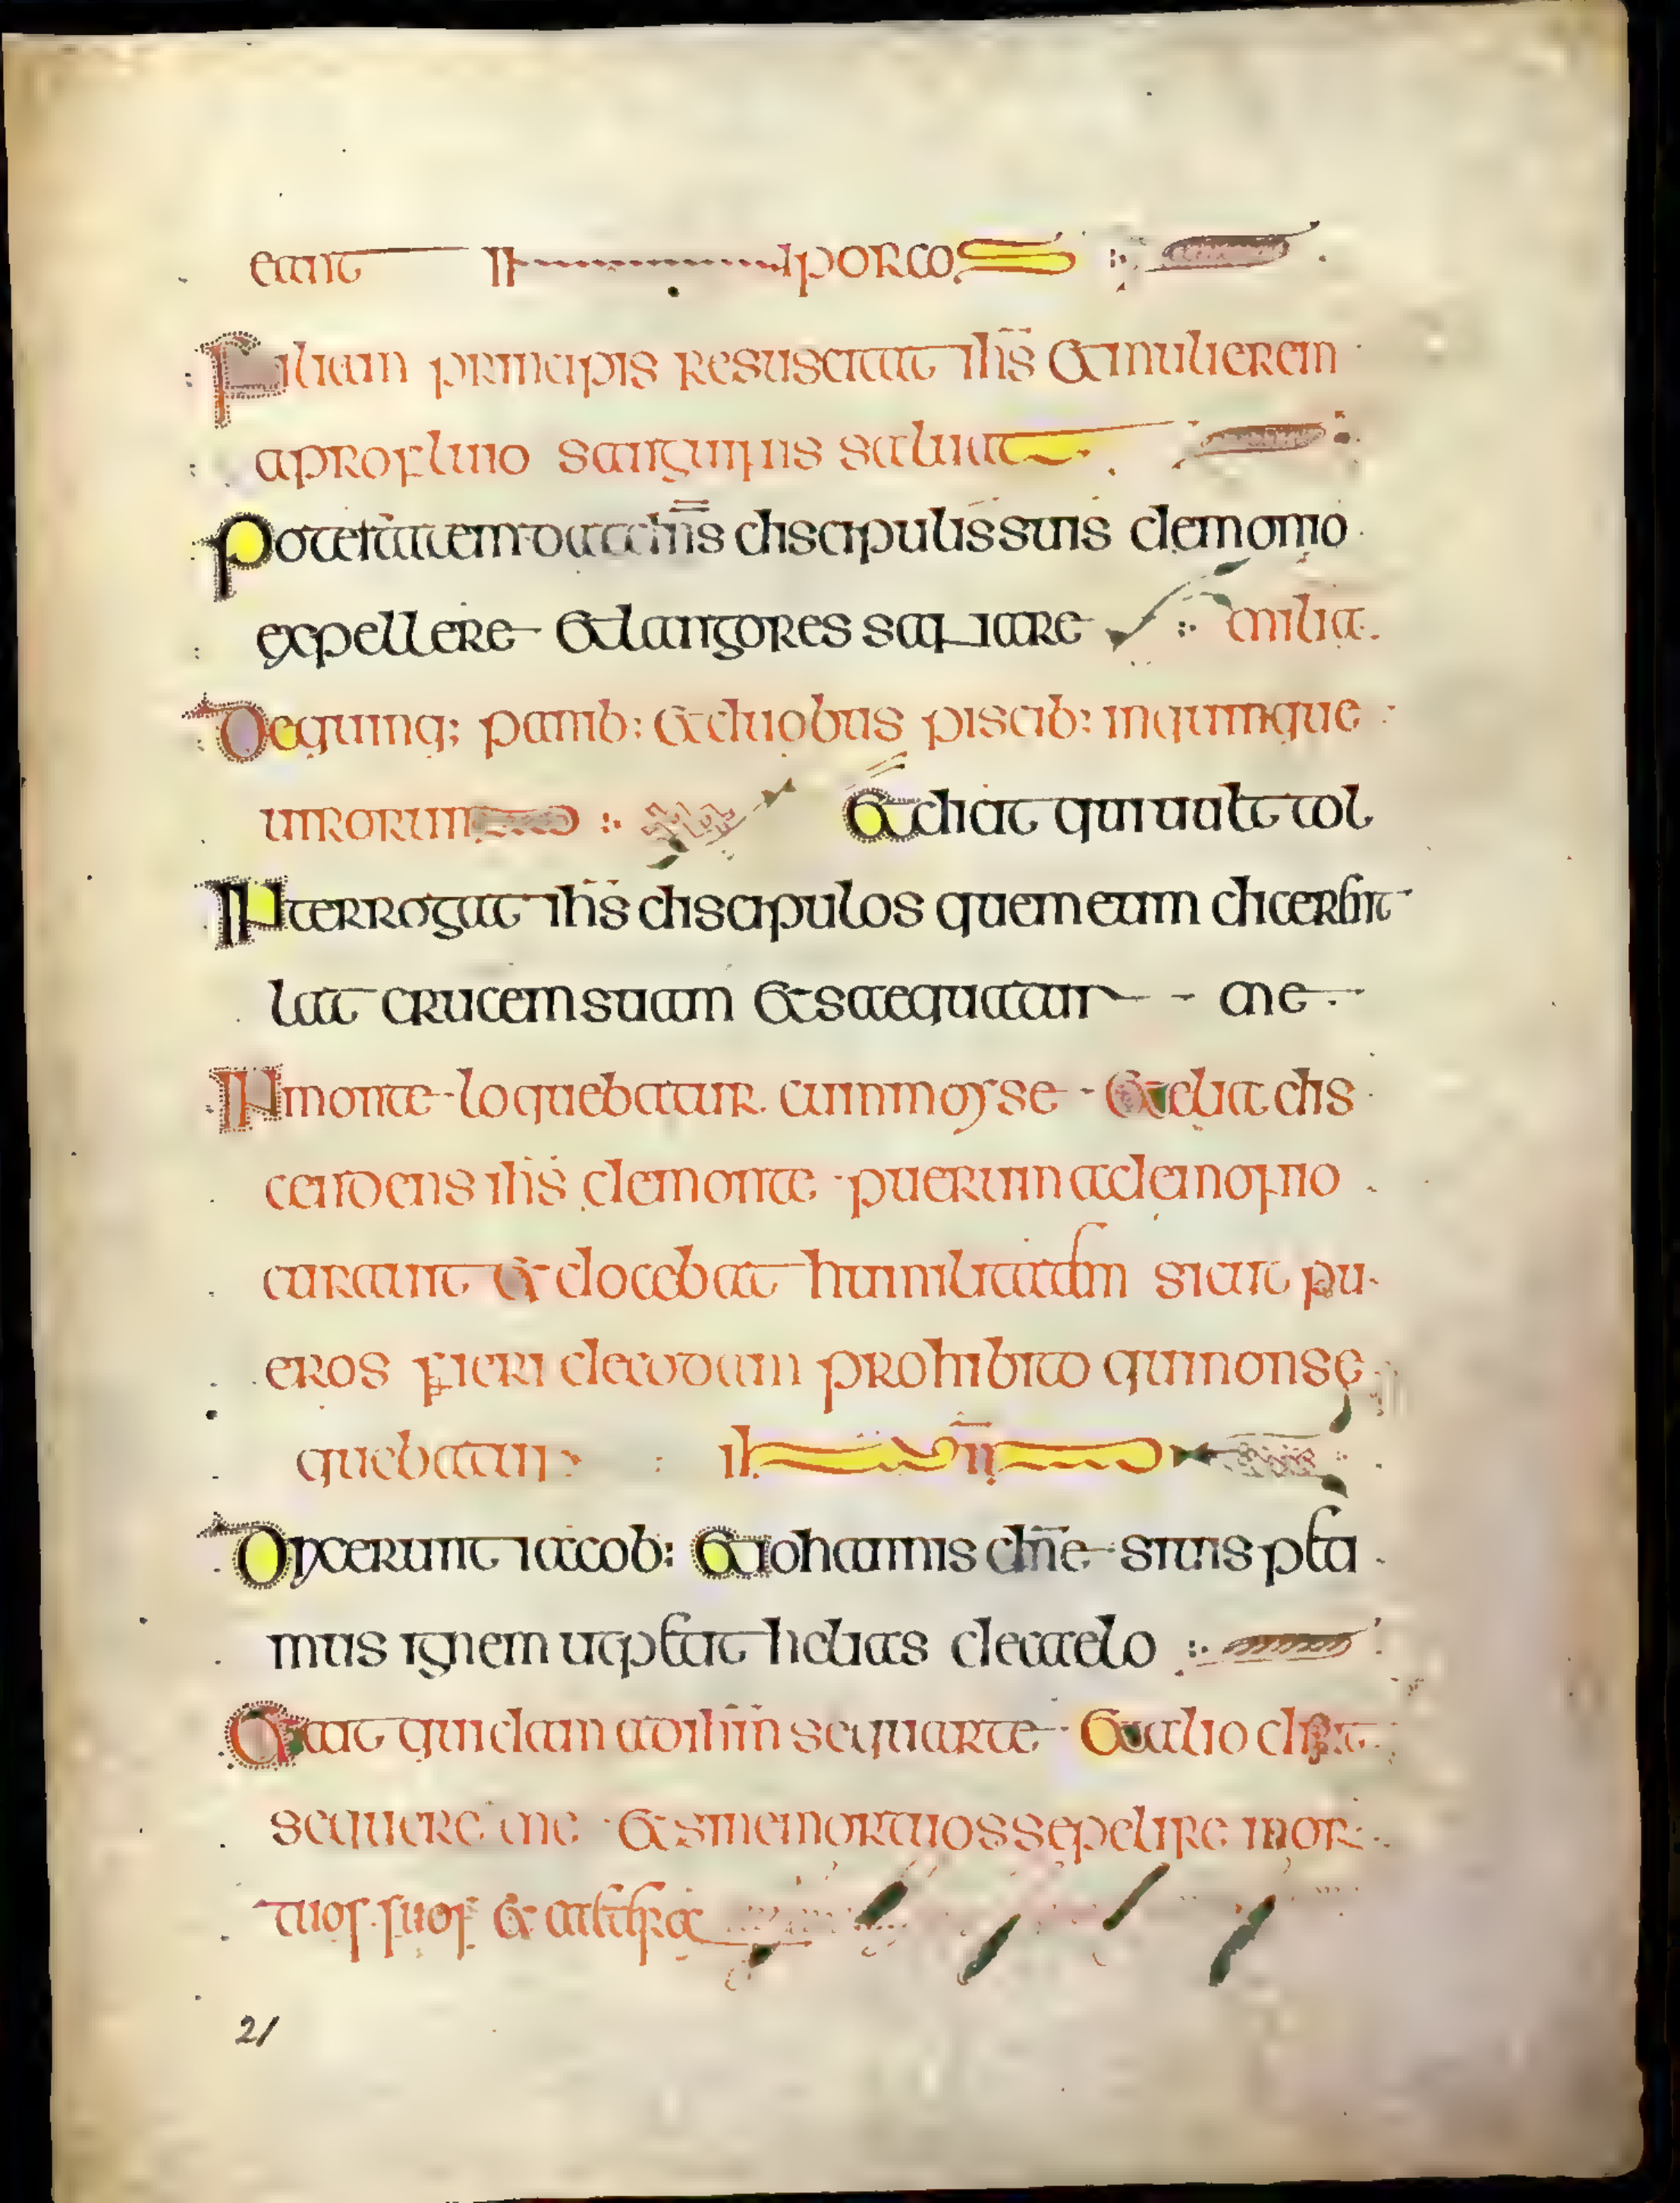 eant in porcos
Filiam principis resuscitat ihs et mulierem
a profluuio sanguinis saluat
Potestatem dat ihs discipulis suis demonio
expellere et langores saniare milia
De quinq; panib: et duobus piscib: in quinque
uirorum et dicit qui uult tol
Interrogat ihs discipulos quem eum dicerent
lat crucem suam et saequatur me
In monte loquebatur cum moyse et elia dis
cendens ihs de monte puerum a demonio
curauit et docebat humilitatem sicut pu
eros fieri de eodem prohibito qui non se
quebatur ihm
Dixerunt iacob: et iohannis dne si uis peta
mus ignem ut petiit helias de caelo
Et ait quidam ad ihm sequar te et alio dixit
sequere me et sine mortuos sepelire mor
tuos suos et
21